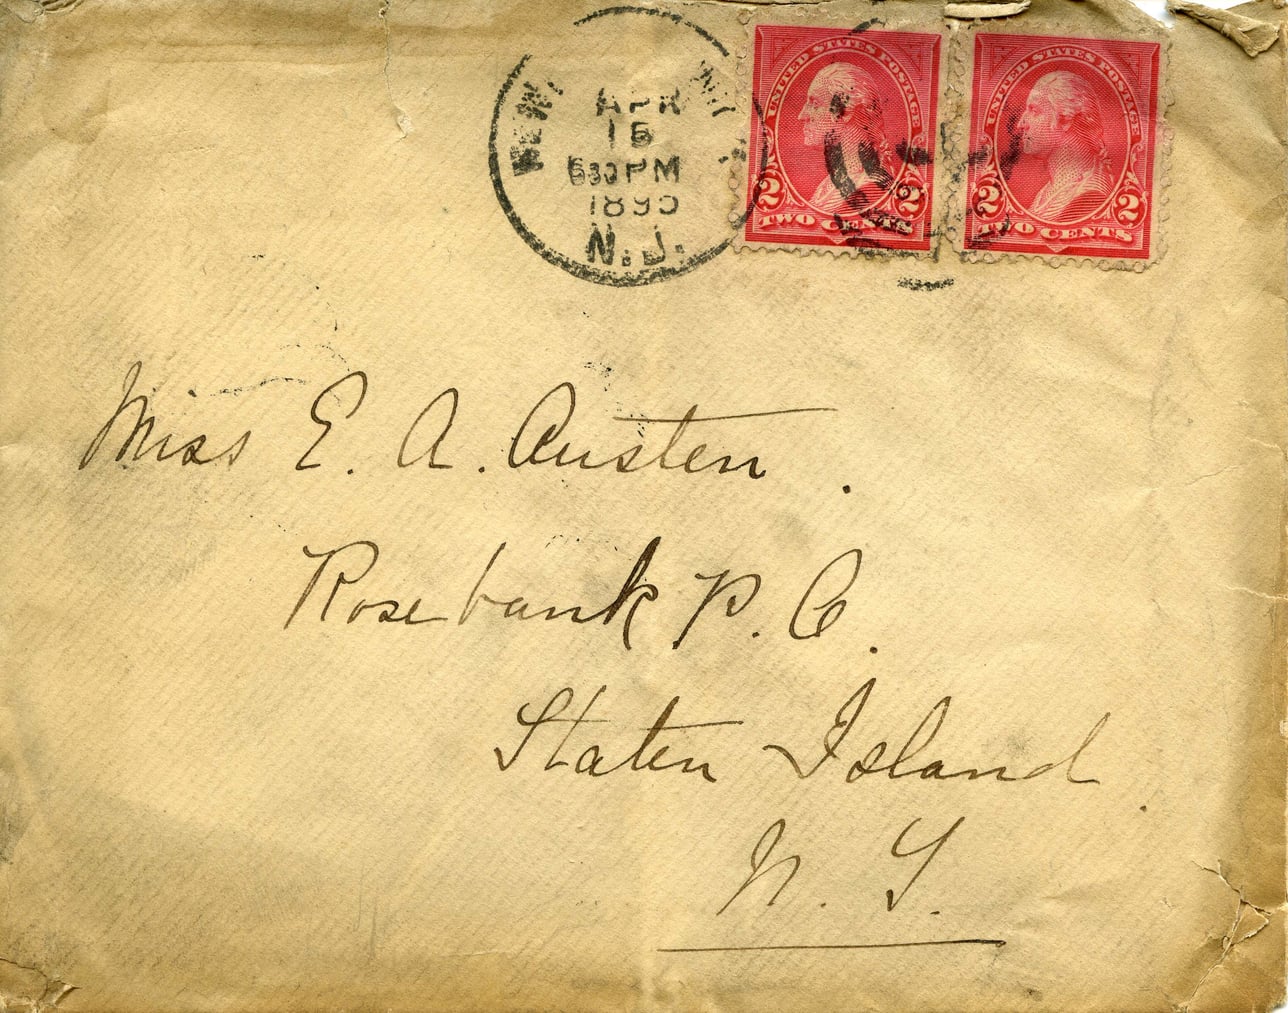 APR
15
630 PM
1895
N.J.
UNITED STATES POSTAGE
2 2
TWO CENTS
UNITED STATES POSTAGE
2 2
TWO CENTS
Miss E. A. Austen.
Rosebank P. O.
Staten Island.
N. Y.